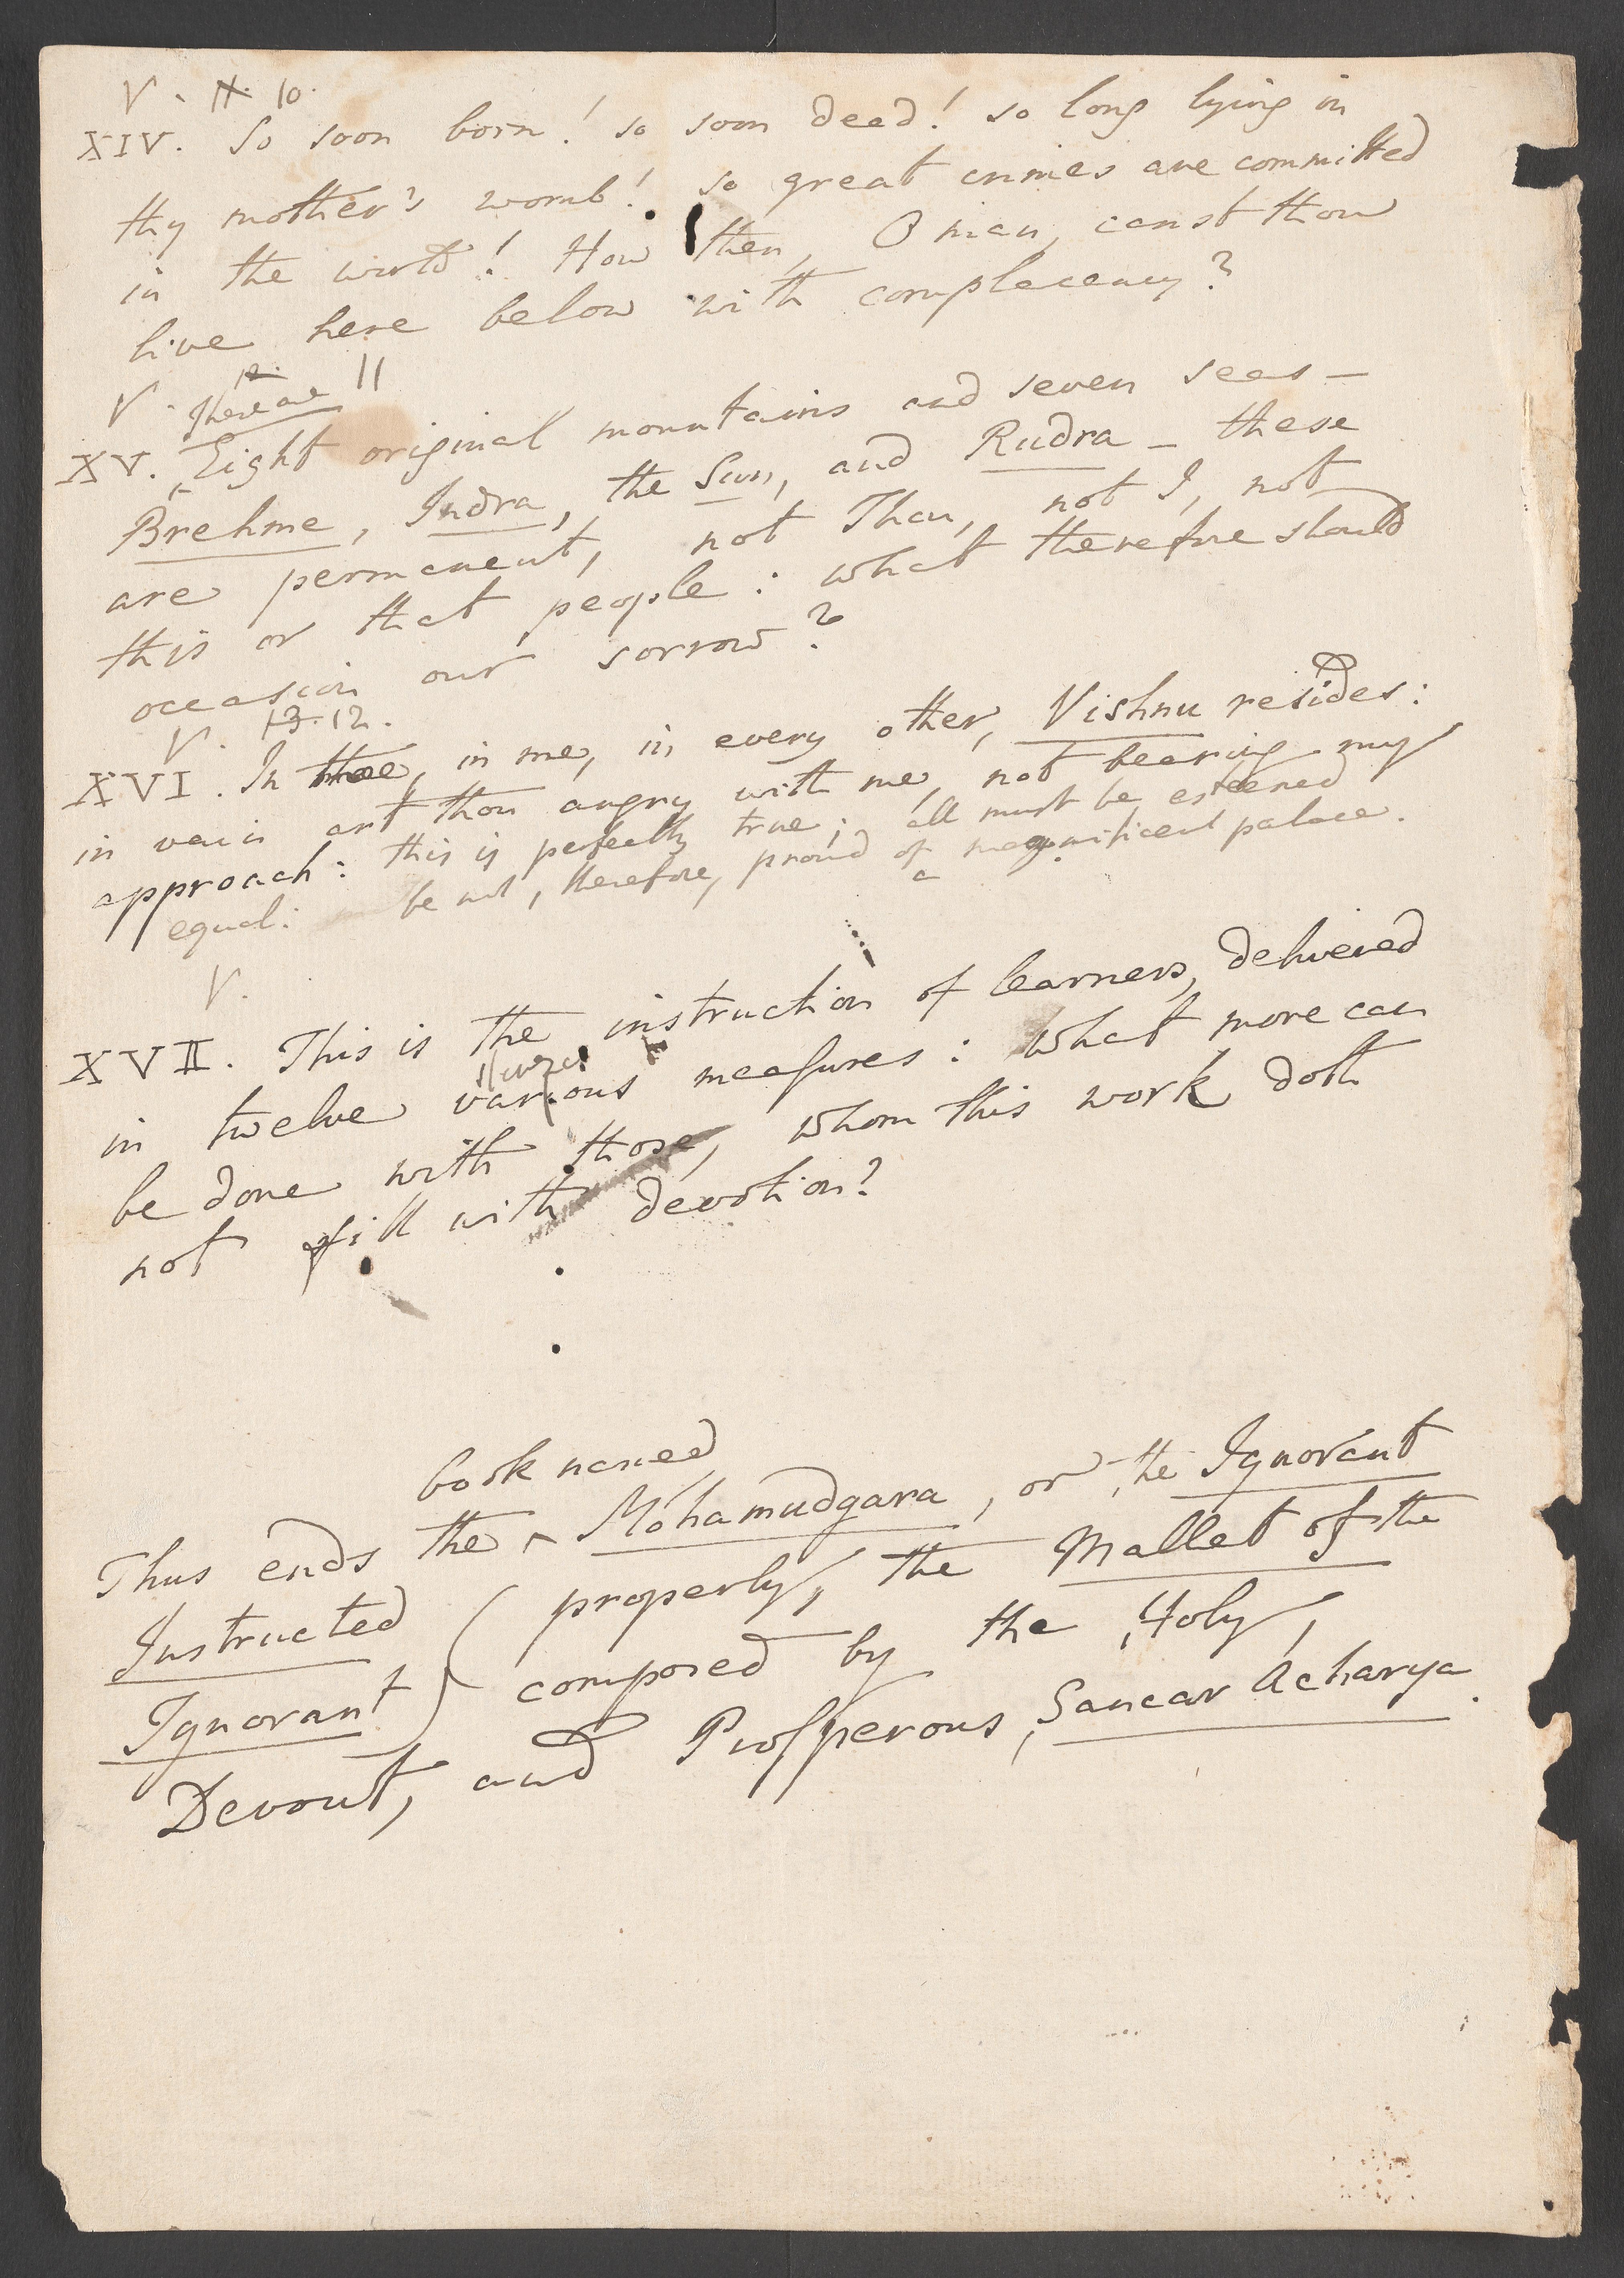 V. 11. 10.
XIV. So soon born! so soon dead! so long lying in
thy mother's womb! so great crimes are committed
in the world! How then, O man, canst thou
live here below with complacency?
V. 12. 11
There are
XV. Eight original mountains and seven seas —
Brehme, Indra, the Sun, and Rudra — these
are permanent, not Thou, not I, not
this or that people: what therefore should
occasion our sorrow?
V. 13. 12.
XVI. In thee, in me, in every other, Vishnu resides:
in vain art thou angry with me, not bearing my
approach: this is perfectly true; all must be esteemed
equal: be not, therefore, proud of a magnificent palace.
V.
XVII. This is the instruction of learners, delivered
in twelve various measures: what more can
be done with those, whom this work doth
not fill with devotion?
book named
Thus ends the ^ Móhamudgara, or the Ignorant
Instructed (properly, the Mallet of the
Ignorant) composed by the Holy,
Devout, and Prosperous, Sancar Acharya.